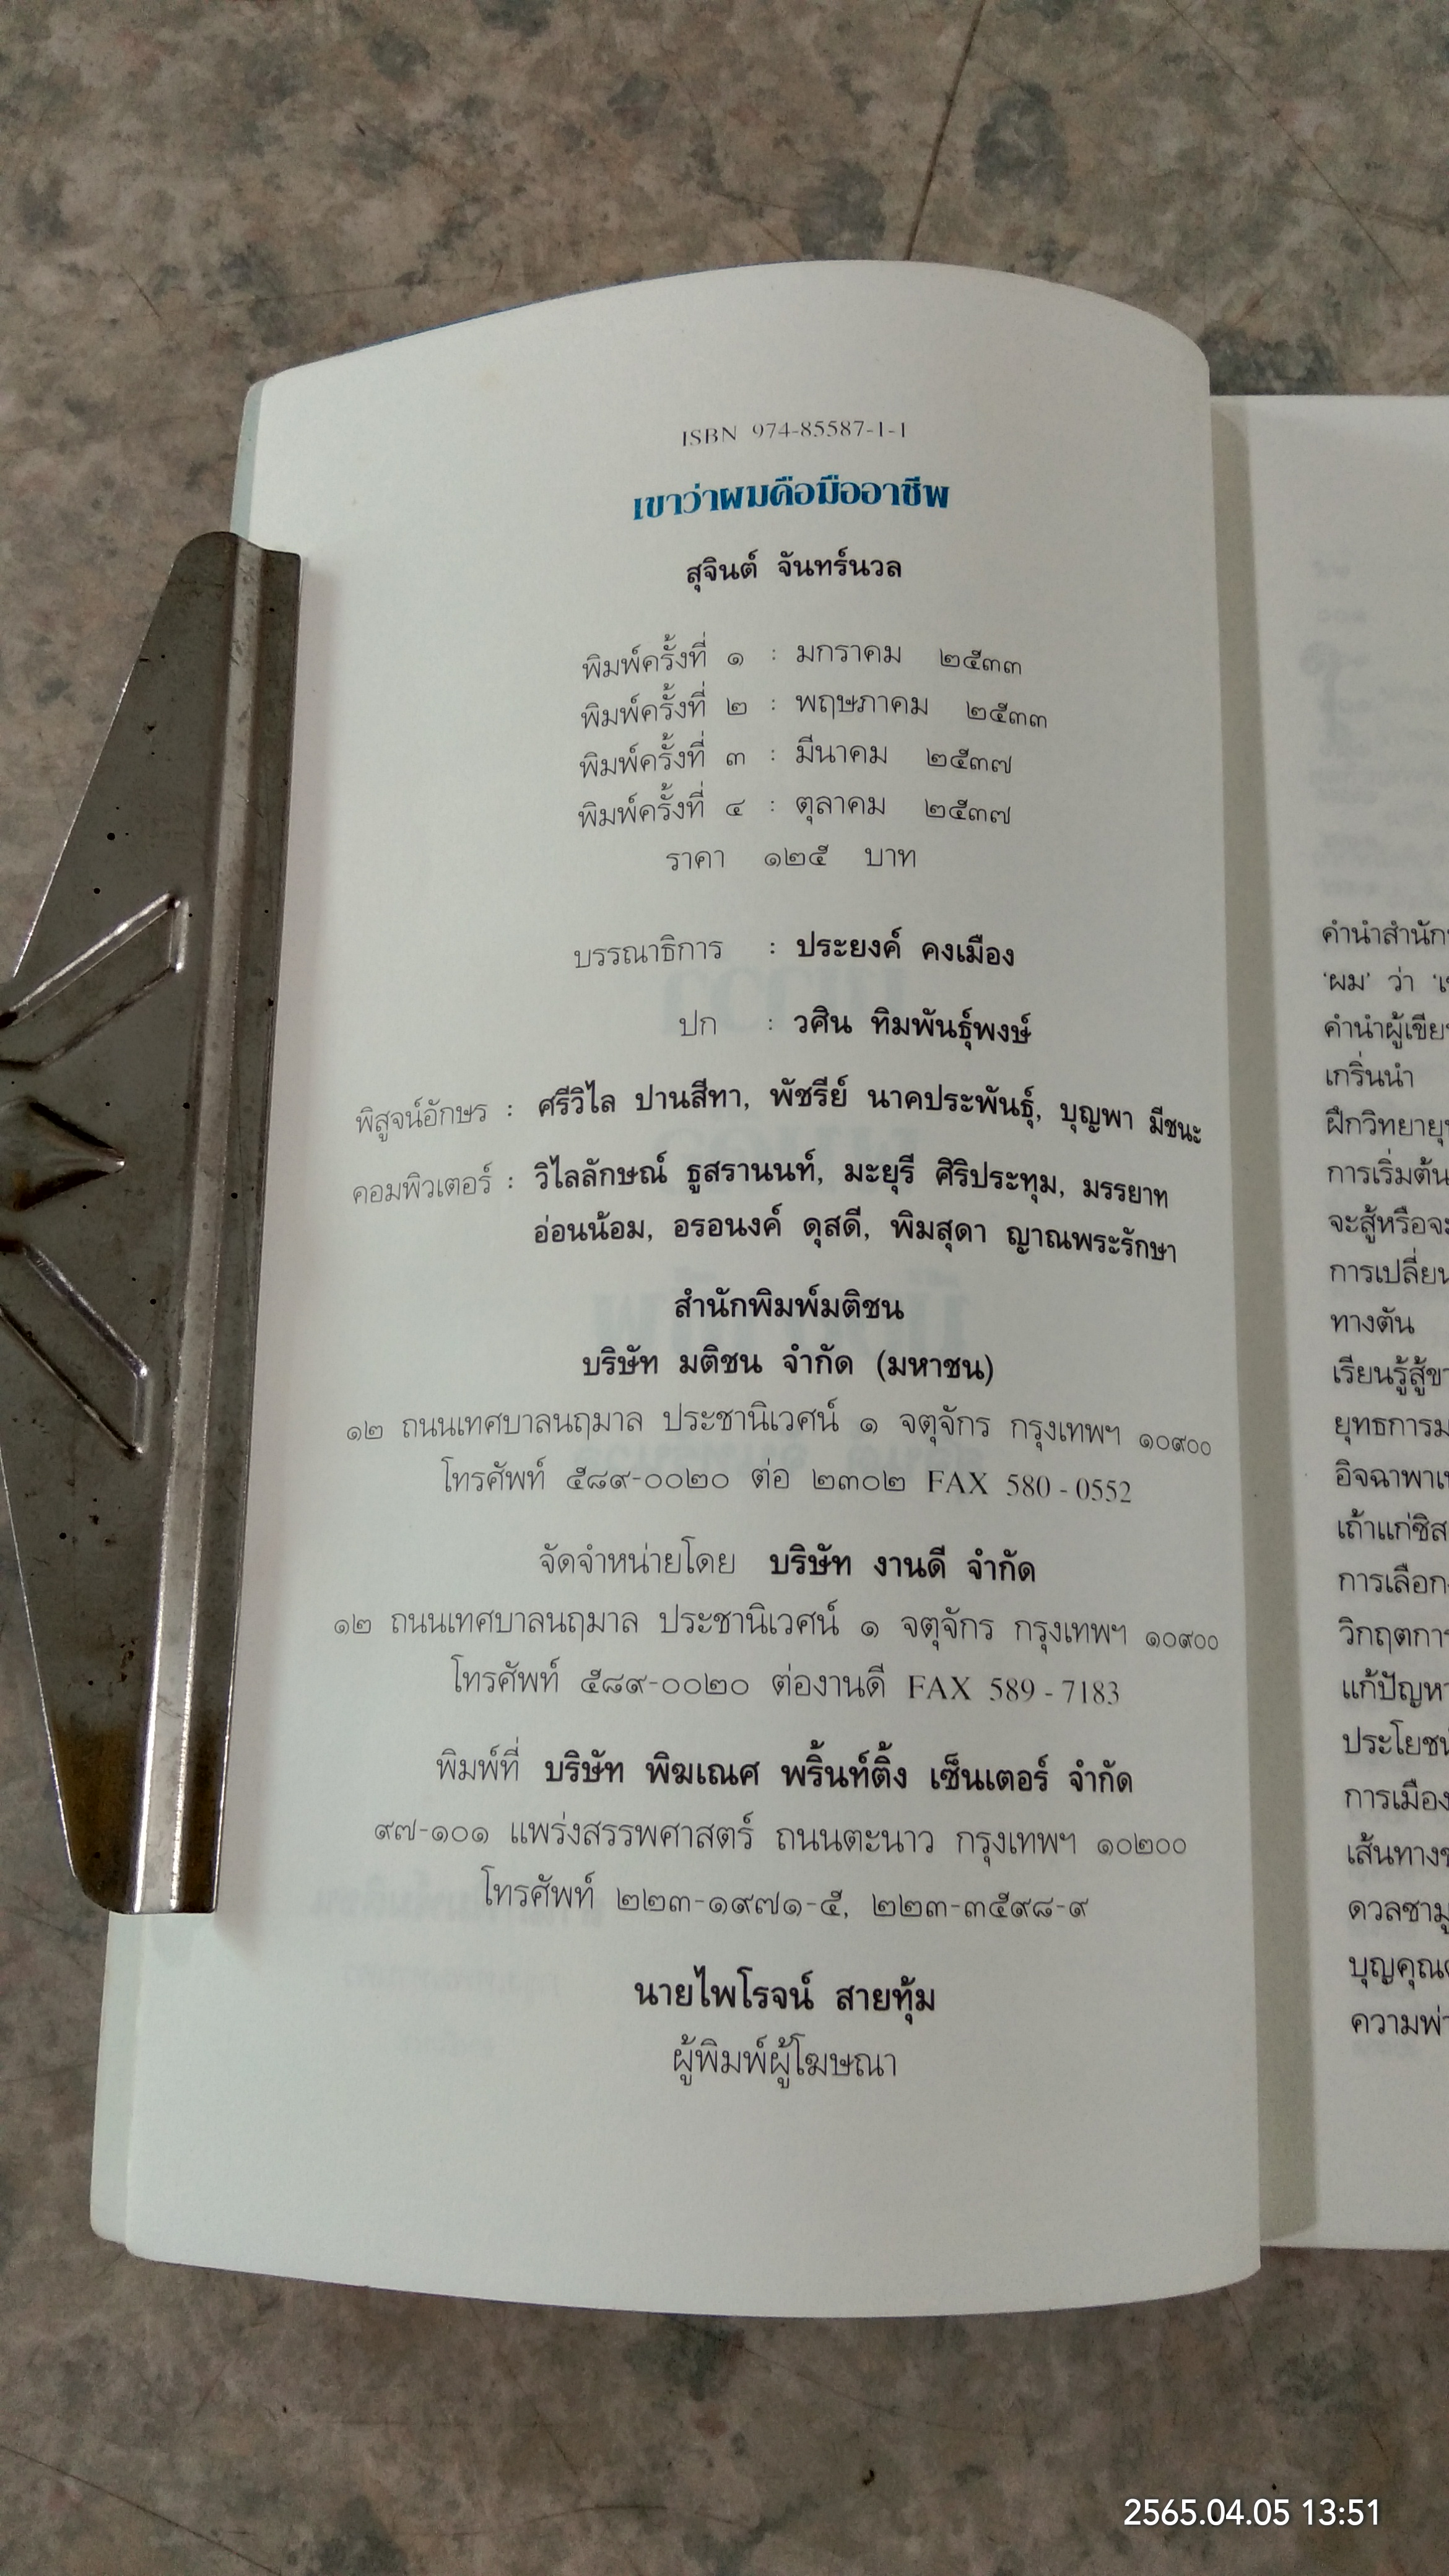 ISBN 974-85587-1-1
เขาว่าผมคือมืออาชีพ
สุจินต์ จันทร์นวล
พิมพ์ครั้งที่ ๑ : มกราคม ๒๕๓๓
พิมพ์ครั้งที่ ๒ : พฤษภาคม ๒๕๓๓
พิมพ์ครั้งที่ ๓ : มีนาคม ๒๕๓๗
พิมพ์ครั้งที่ ๔ : ตุลาคม ๒๕๓๗
ราคา ๑๒๕ บาท
บรรณาธิการ : ประยงค์ คงเมือง
ปก : วศิน ทิมพันธุ์พงษ์
พิสูจน์อักษร : ศรีวิไล ปานสีทา, พัชรีย์ นาคประพันธุ์, บุญพา มีชนะ
คอมพิวเตอร์ : วิไลลักษณ์ ธูสรานนท์, มะยุรี ศิริประทุม, มรรยาท
อ่อนน้อม, อรอนงค์ ดุสดี, พิมสุดา ญาณพระรักษา
สำนักพิมพ์มติชน
บริษัท มติชน จำกัด (มหาชน)
๑๒ ถนนเทศบาลนฤมาล ประชานิเวศน์ ๑ จตุจักร กรุงเทพฯ ๑๐๙๐๐
โทรศัพท์ ๕๘๙-๐๐๒๐ ต่อ ๒๓๐๒ FAX 580 - 0552
จัดจำหน่ายโดย บริษัท งานดี จำกัด
๑๒ ถนนเทศบาลนฤมาล ประชานิเวศน์ ๑ จตุจักร กรุงเทพฯ ๑๐๙๐๐
โทรศัพท์ ๕๘๙-๐๐๒๐ ต่องานดี FAX 589 - 7183
พิมพ์ที่ บริษัท พิฆเณศ พริ้นท์ติ้ง เซ็นเตอร์ จำกัด
๙๗-๑๐๑ แพร่งสรรพศาสตร์ ถนนตะนาว กรุงเทพฯ ๑๐๒๐๐
โทรศัพท์ ๒๒๓-๑๙๗๑-๕, ๒๒๓-๓๕๙๘-๙
นายไพโรจน์ สายทุ้ม
ผู้พิมพ์ผู้โฆษณา
คำนำสำนัก
'ผม' ว่า
คำนำผู้เขีย
เกริ่นนำ
ฝึกวิทยายุ
การเริ่มต้น
จะสู้หรือจะ
การเปลี่ยน
ทางตัน
เรียนรู้สู้ขา
ยุทธการม
อิจฉาพาเ
เถ้าแก่ซิส
การเลือก
วิกฤตการ
แก้ปัญหา
ประโยชน
การเมือง
เส้นทางช
ดวลซามู
บุญคุณ
ความพ่า
2565.04.05 13:51